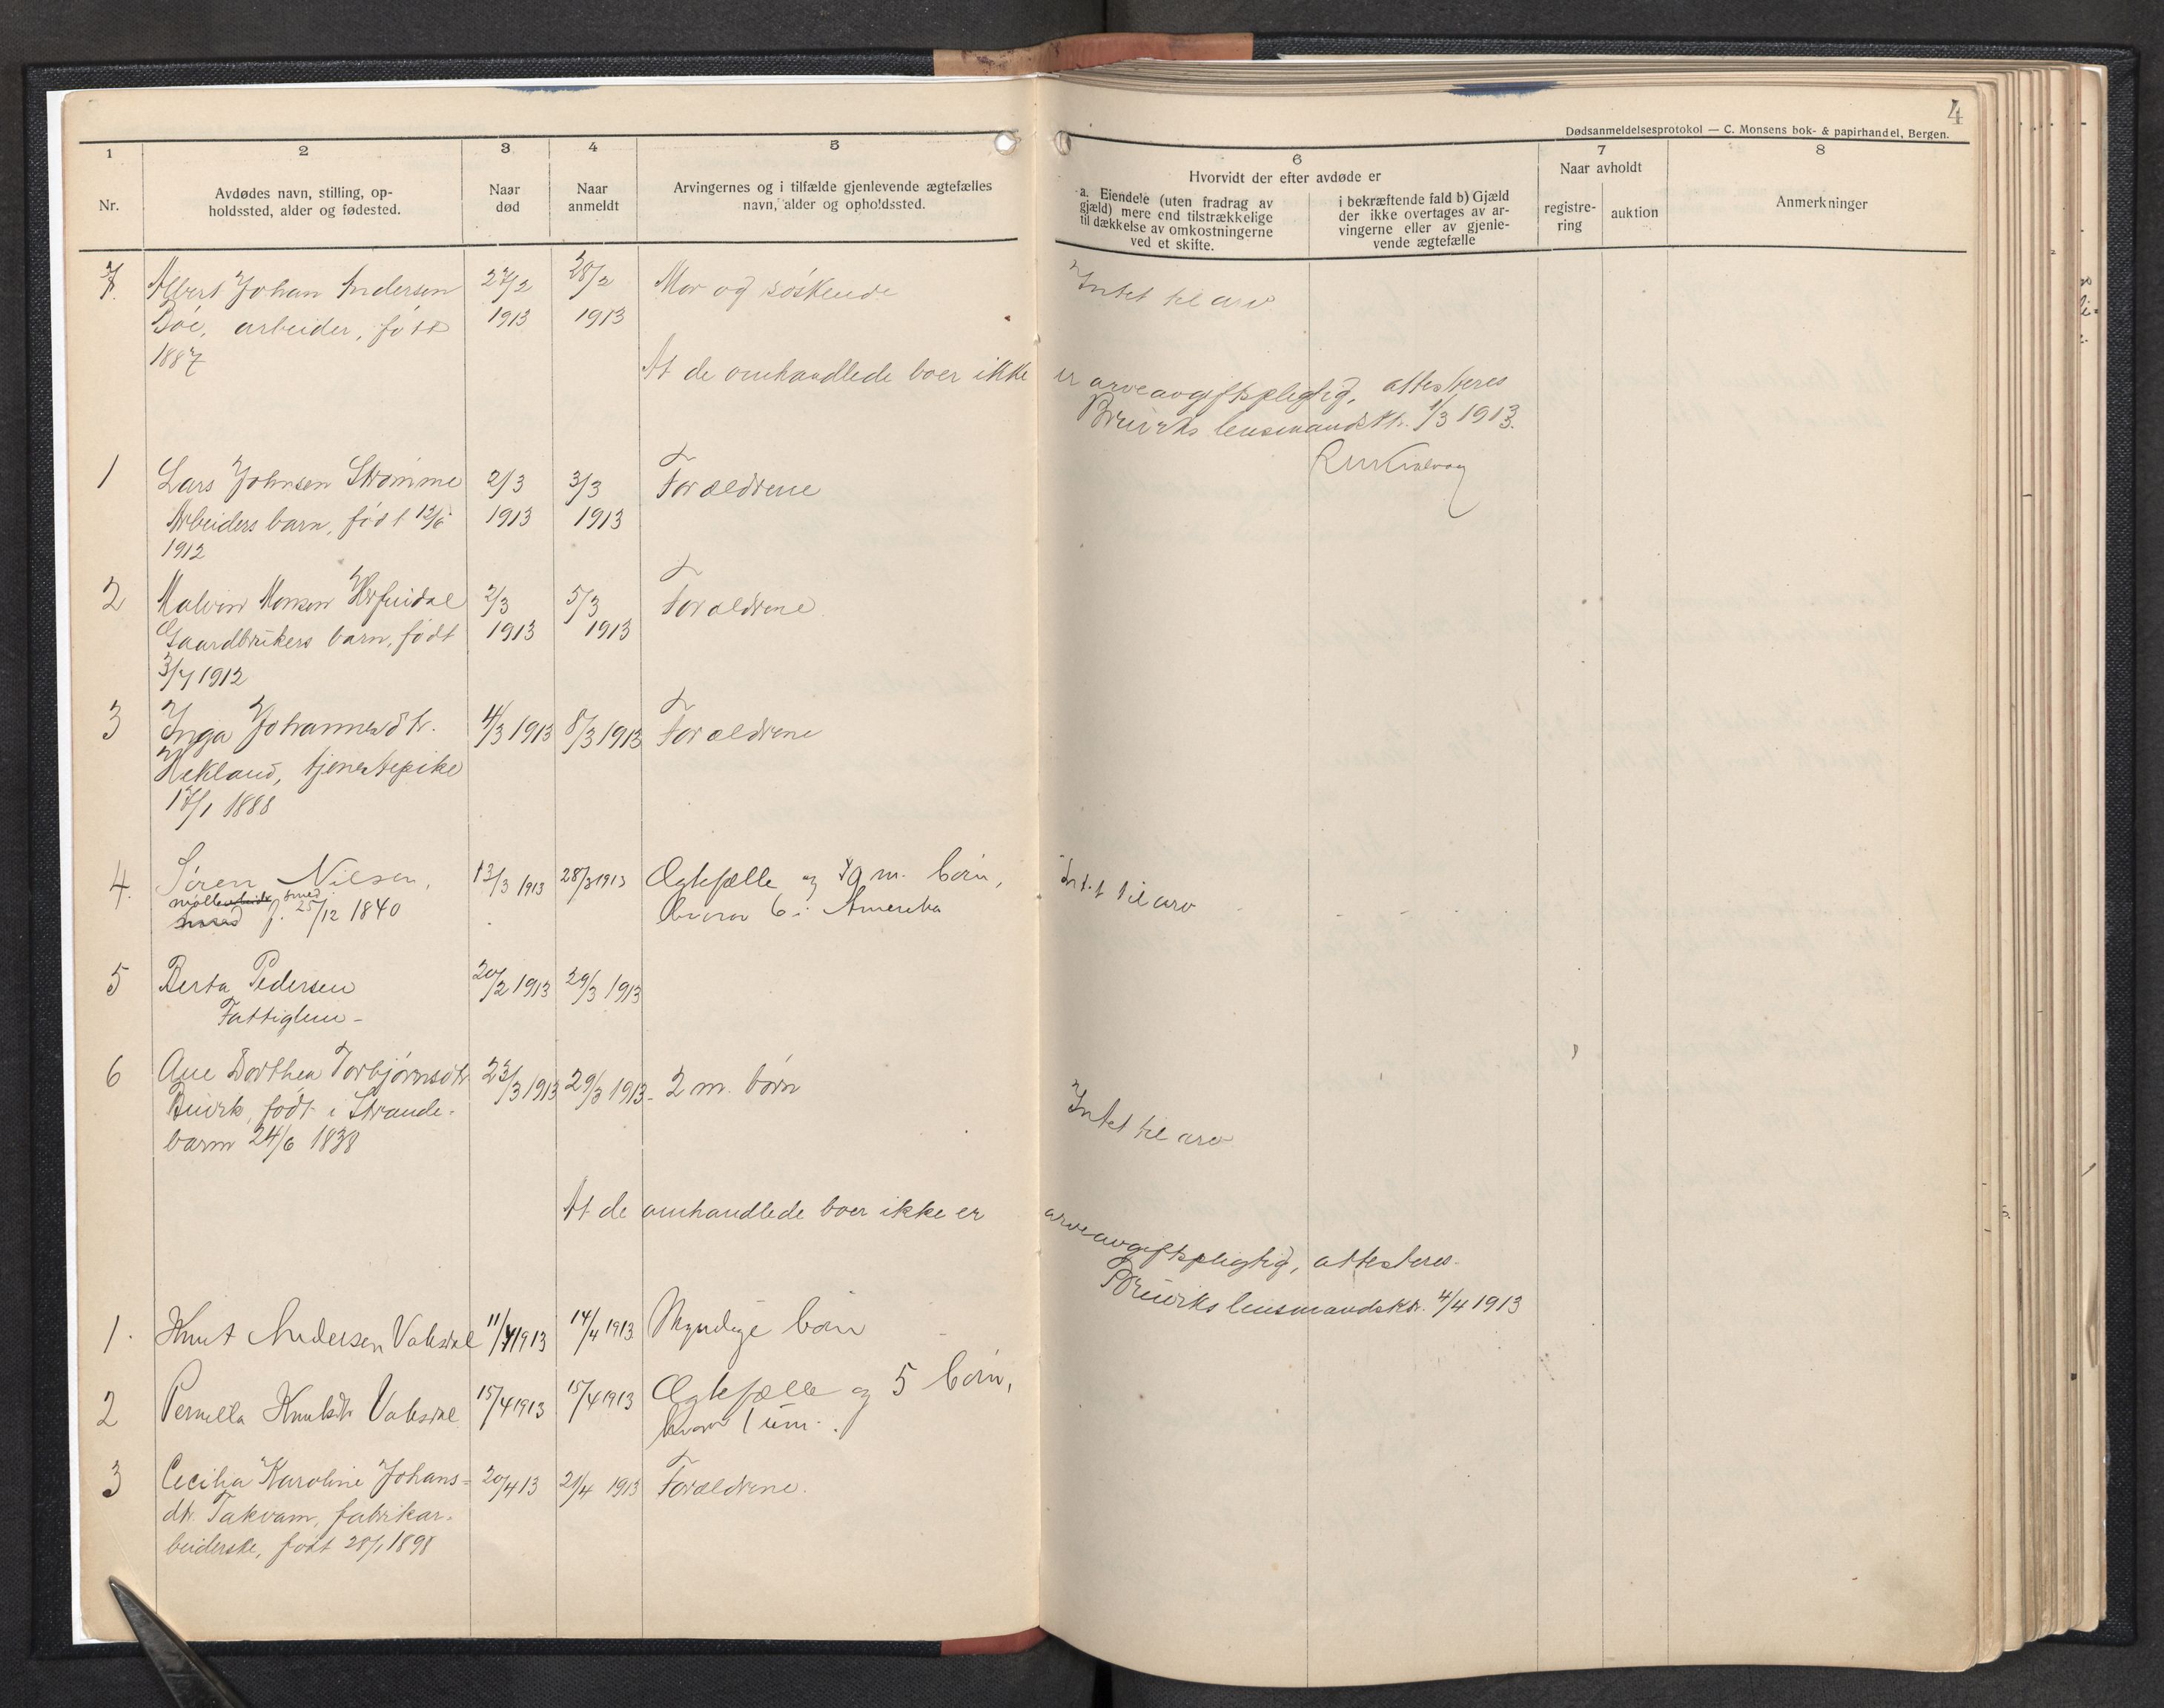 4
Dødsanmeldelsesprotokol — C. Monsens bok- & papirhandel, Bergen.
1
Nr.
2
Avdødes navn, stilling, op-
holdssted, alder og fødested.
3
Naar
død
4
Naar
anmeldt
5
Arvingernes og i tilfælde gjenlevende ægtefælles
navn, alder og opholdssted.
6
Hvorvidt der efter avdøde er
a. Eiendele (uten fradrag av
gjæld) mere end tilstrækkelige
til dækkelse av omkostningerne
ved et skifte.
i bekræftende fald b) Gjæld
der ikke overtages av ar-
vingerne eller av gjenle-
vende ægtefælle
7
Naar avholdt
registre-
ring
auktion
8
Anmerkninger
7. Albert Johan Andersen 27/2 28/2 Mor og søskende Intet til arv
Böe, arbeider, född 1913 1913
1887
At de omhandlede boer ikke er arveavgiftspligtig, attesteres
Bruviks lensmandsktr. 1/3 1913.
1 Lars Johnsen Strømme 2/3 3/3 Forældrene
Arbeiders barn, född 1913 1913
1912
2 Malvin Monsen 2/3 5/3 Forældrene
Gaardbrukers barn, født 1913 1913
3/7 1912
3 Inga Johannesdtr. 4/3 1913 8/3 1913 Forældrene
Hekland, tjenestepike
17/1 1888
4. Søren Nilsen, 13/3 1913 28/3 1913 Ægtefælle og 9 m. børn, Intet til arv
smed
f. 25/12 1840 hvorav 6 i Amerika
5 Berta Pedersen 20/2 1913 29/3 1913
Fattiglem -
6 Ane Dorthea Torbjørnsdtr 23/3 1913 29/3 1913 - 2 m. børn Intet til arv
Bruvik, født i Strande-
barm 24/6 1838
At de omhandlede boer ikke er arveavgiftspligtig, attesteres.
Bruviks lensmandsktr. 4/4 1913
1. Knut Andersen Vaksdal 11/4 1913 14/4 1913 Myndige børn
2 Pernilla Knutsdtr Vaksdal 15/4 1913 15/4 1913 Ægtefælle og 5 børn,
hvorav 1 um.
3 Cecilia Karoline Johans- 20/4 13 21/4 1913 Forældrene.
dtr. Takvam, fabrikar-
beiderske, født 28/1 1898